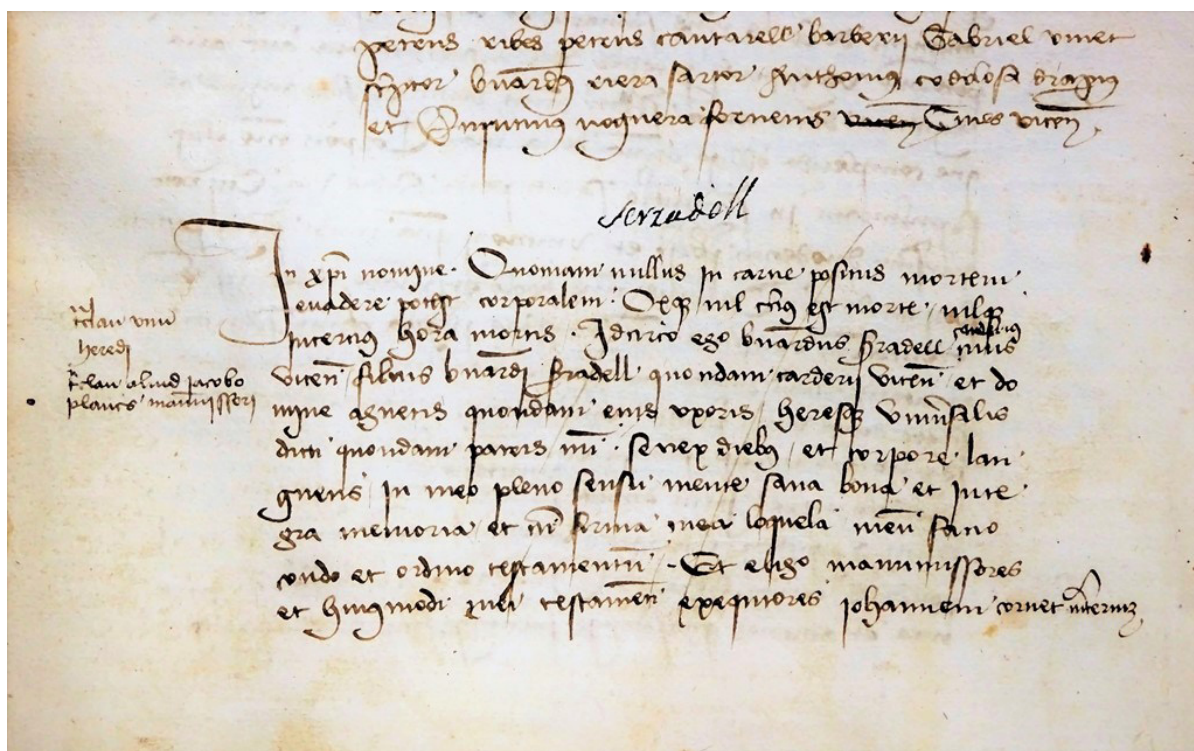 petrus ribes petrus cantarell barberii Gabriel vinet
sc̄ptor bn̄ardꝰ riera sartor Anthonius codolosa
et noguera fornerius Ciues vicen̄
serradell
In xp̄i nomine. Quoniam nullus in carne positus mortem
euadere potest corporalem. nil cerciꝰ est morte, nilqꝫ
Incercius hora mortis. Idcirco ego bn̄ardus ẜradell carderius ciuis
vicen̄ filius bn̄ardi ẜradell quondam carderii vicen̄ et do
mine agnetis quondam eius vxoris heresqꝫ vniu̕salis
dicti quondam patris mei. senex diebꝰ, et corpore lan
guens, in meo pleno sensu mente sana bona et inte
gra memoria, et cū firma mea loquela meū facio
condo et ordino testamentū. Et eligo manumissores
et huiꝰmodi mei testamēti exequtores johannem cornet
clau vnū
heredi
clau aliud jacobo
planes manumissori